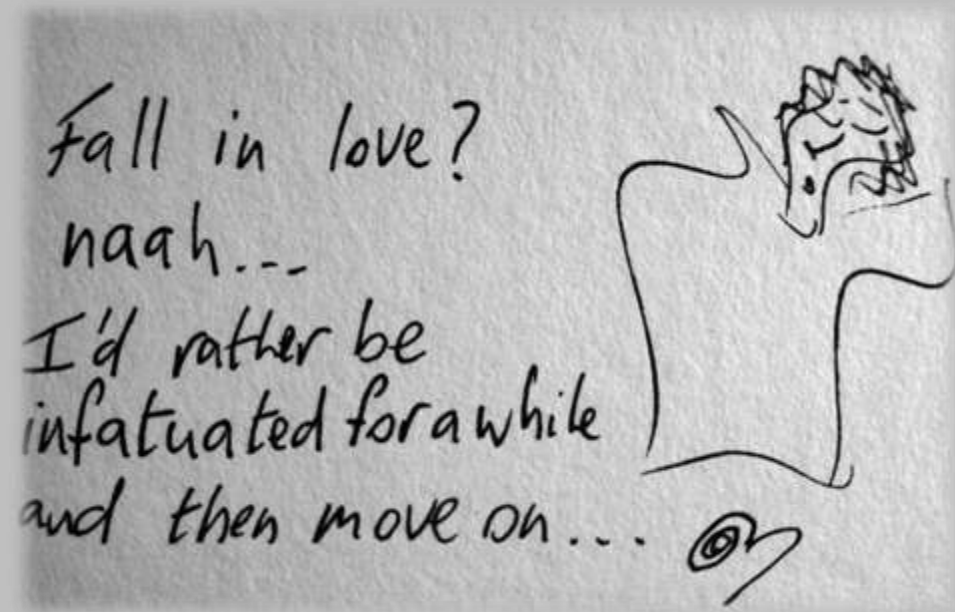 Fall in love?
naah...
I'd rather be
infatuated for a while
and then move on...